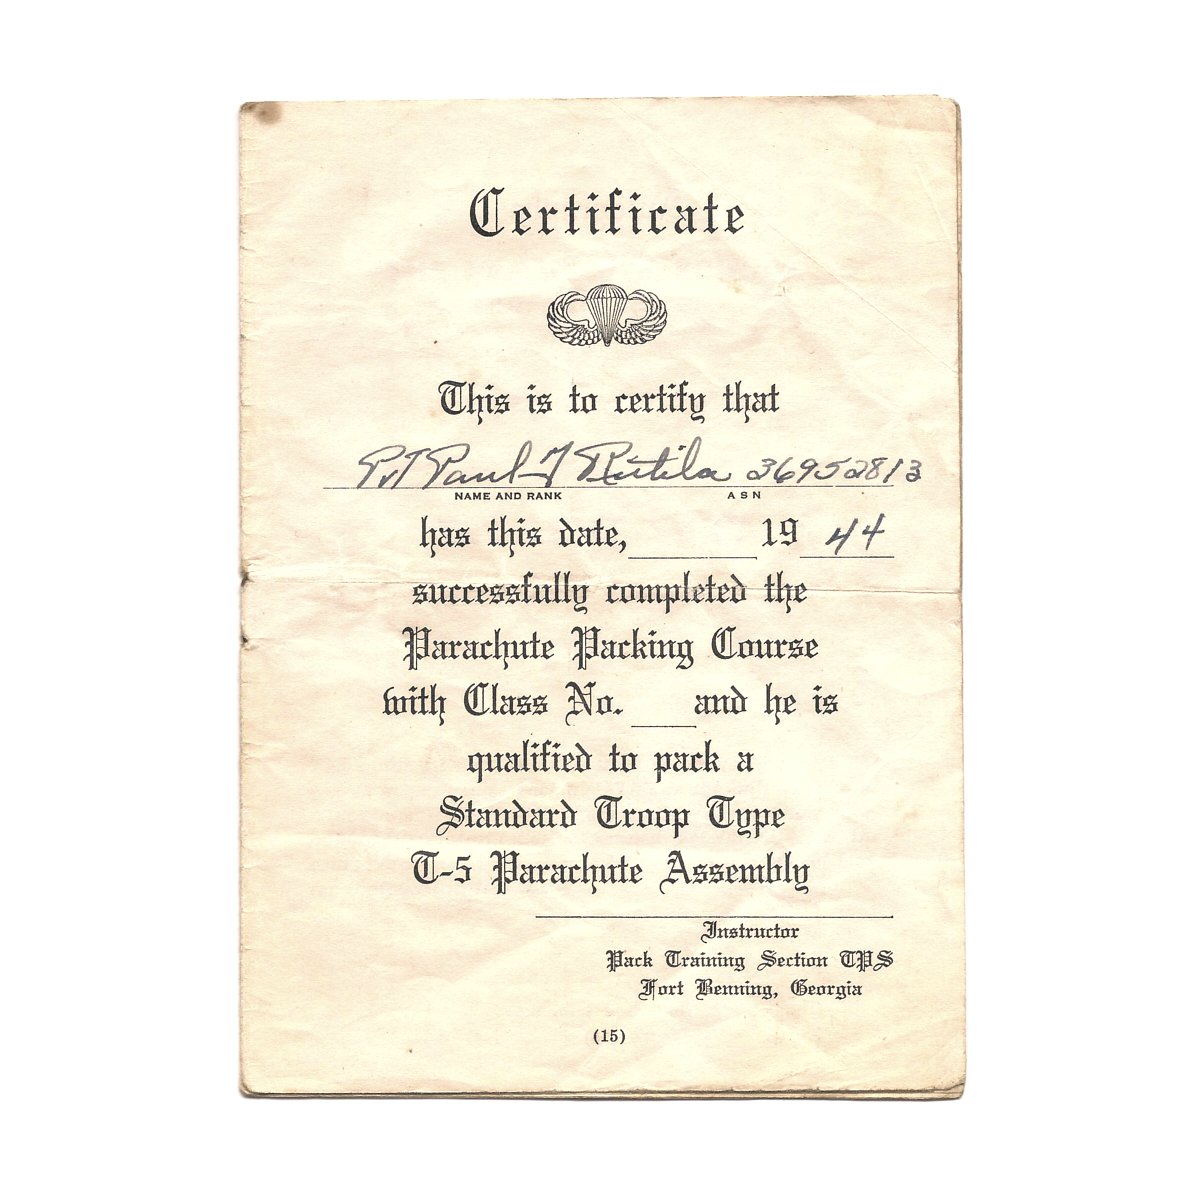 Certificate
This is to certify that
Pvt Paul F Rutila 36952813
NAME AND RANK ASN
has this date, 19 44
successfully completed the
Parachute Packing Course
with Class No. and he is
qualified to pack a
Standard Troop Type
T-5 Parachute Assembly
Instructor
Pack Training Section TPS
Fort Benning, Georgia
(15)